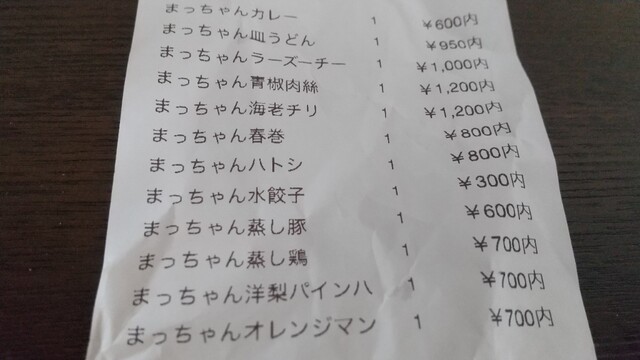 まっちゃんカレー 1 ¥600内
まっちゃん皿うどん 1 ¥950内
まっちゃんラーズーチー 1 ¥1,000内
まっちゃん青椒肉絲 1 ¥1,200内
まっちゃん海老チリ 1 ¥1,200内
まっちゃん春巻 1 ¥800内
まっちゃんハトシ 1 ¥800内
まっちゃん水餃子 1 ¥300内
まっちゃん蒸し豚 1 ¥600内
まっちゃん蒸し鶏 1 ¥700内
まっちゃん洋梨パインハ 1 ¥700内
まっちゃんオレンジマン 1 ¥700内